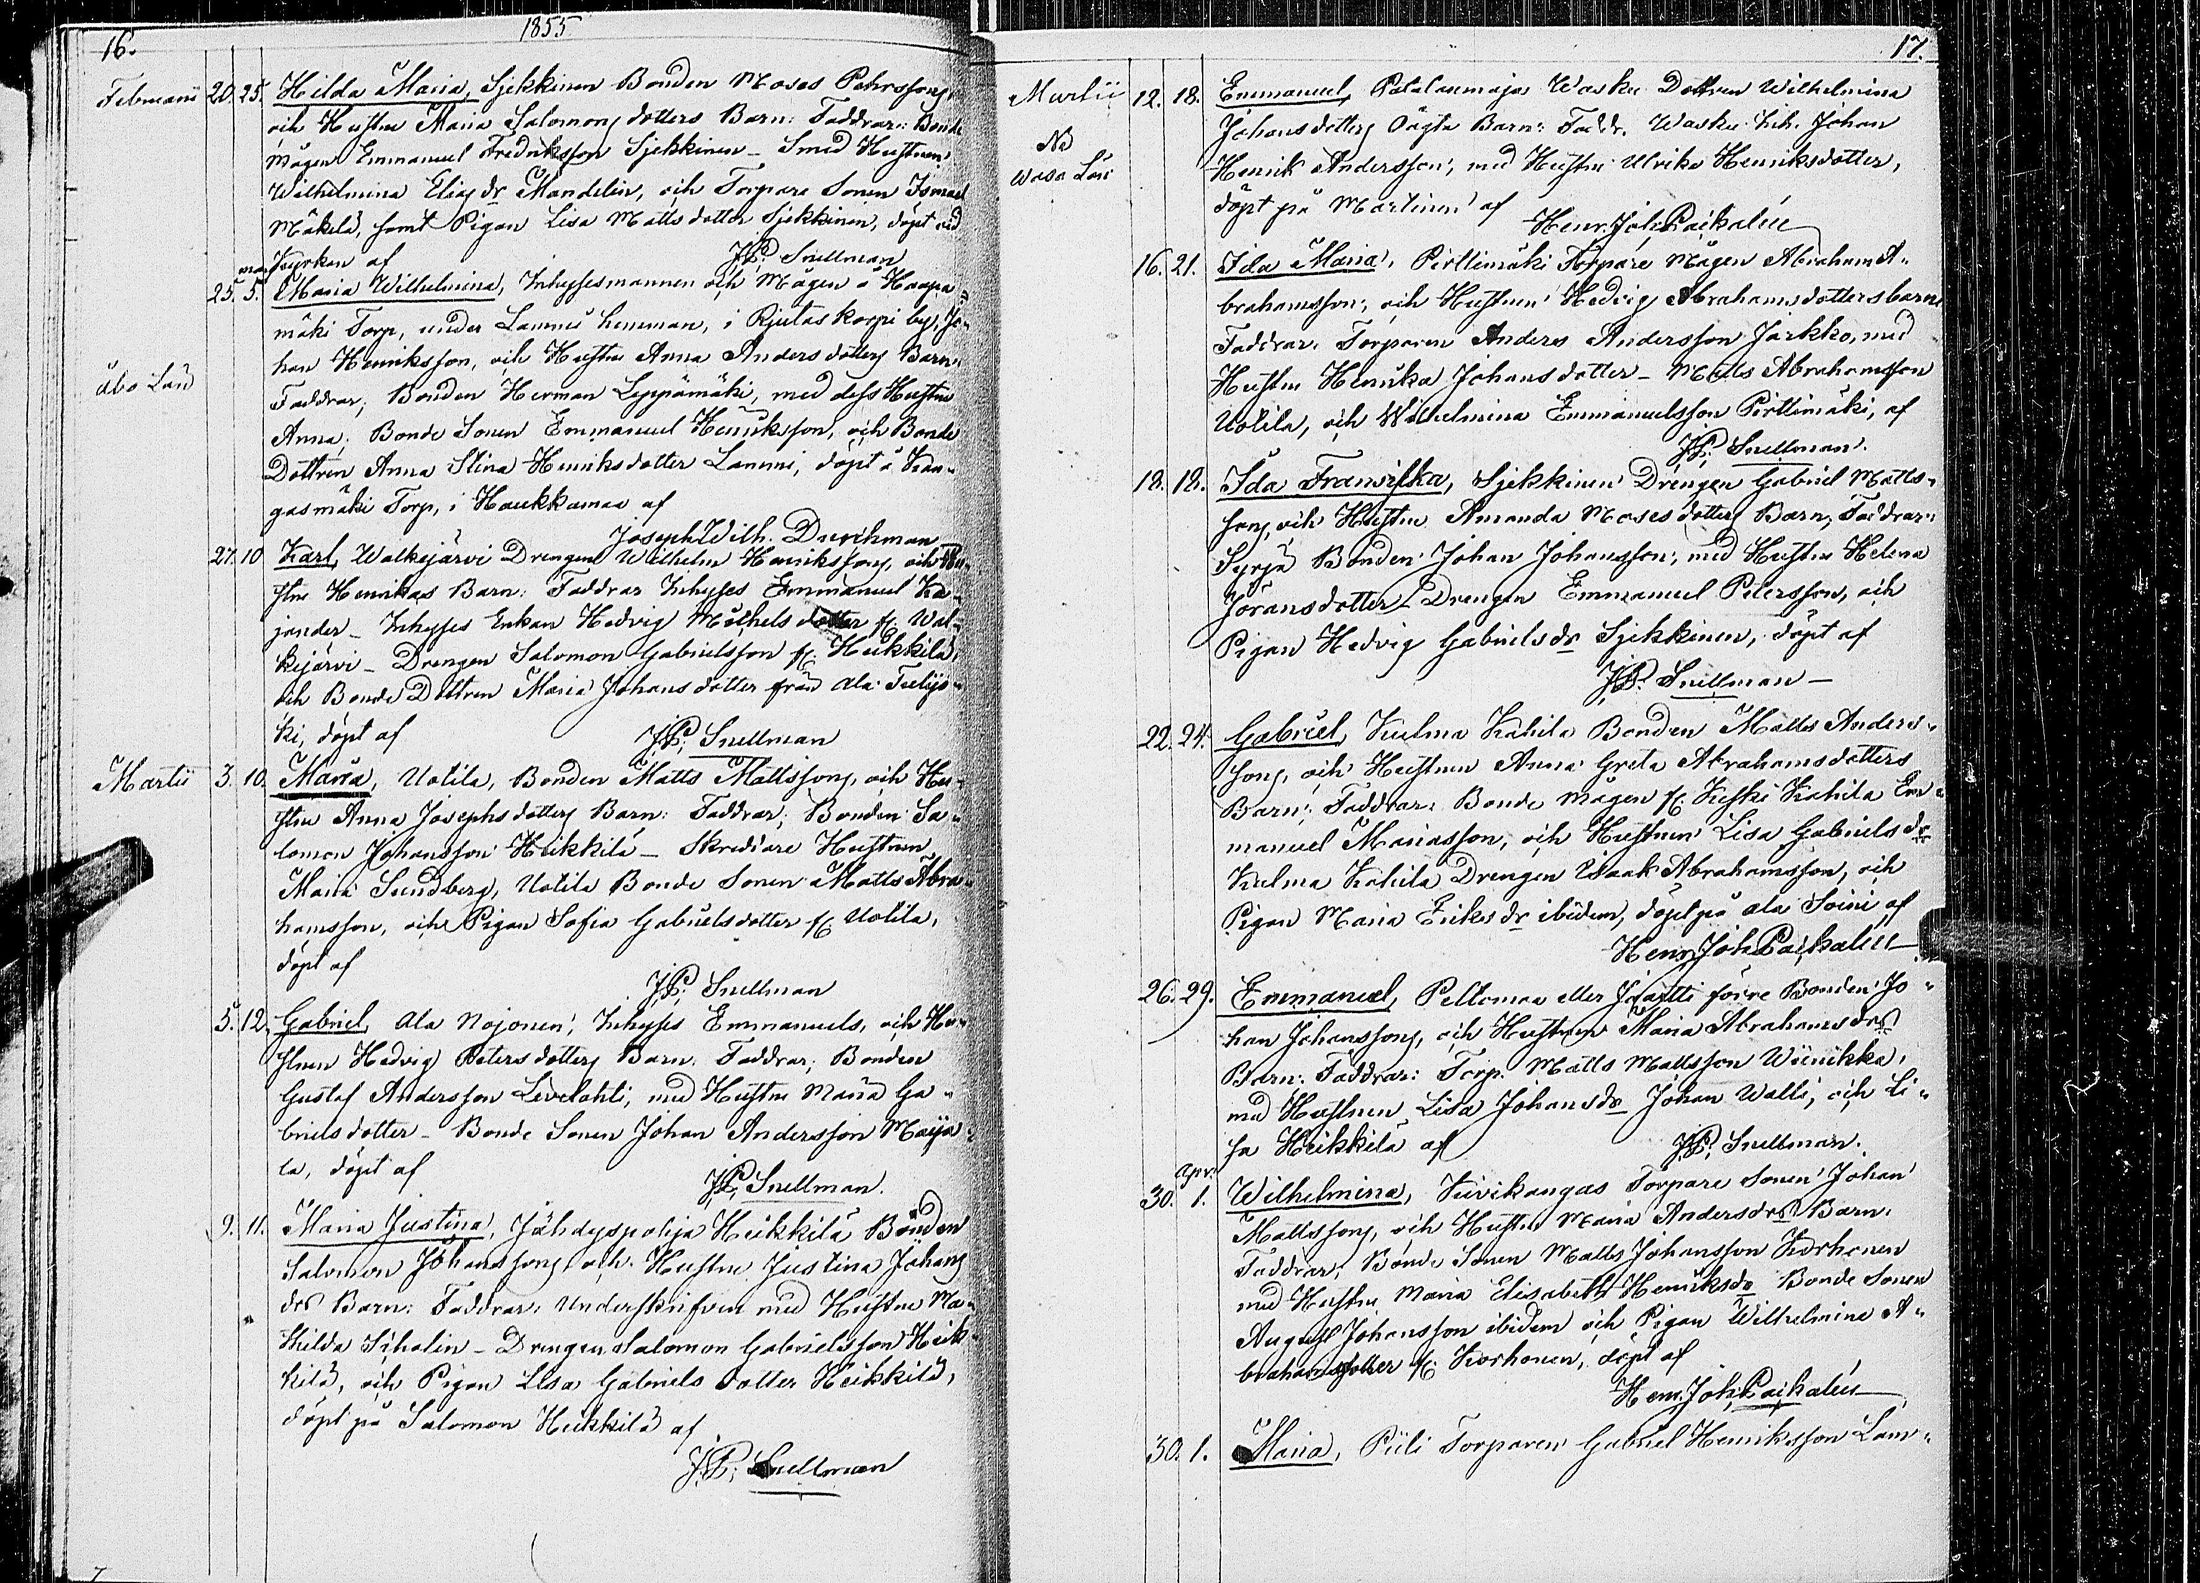 1855
16.
Februarii 20. 25. Hilda Maria, Sjekkinen Bonden Moses Pehrssons,
och Hustrus Maria Salomons dotters Barn: Faddrar: Bonde
Mågen Emmanuel Fredriksson Sjekkinen – Smed Hustrun
Wilhelmina Elias dr Mandelin, och Torpare Sonen Ismael
Mäkelä, samt Pigan Lisa Matts dotter Sjekkinen, döpt vid
Kyrkan af J.P. Snellman
mar
25. 5. Maria Wilhelmina, Inhysesmannen och Mågen å Haapa-
mäki Torp, under Lammi hemman, i Rjutaskorpi by, Jo-
åbo Län
han Henriksson, och Hustrus Anna Anders dotters Barn.
Faddrar; Bonden Herman Leppämäki, med dess Hustru
Anna; Bonde Sonen Emmanuel Henriksson, och Bonde
Dottren Anna Stina Henriksdotter Lammi, döpt å Kan-
gasmäki Torp, i Haukkamaa af
Joseph Wilh. Durchman
27. 10 Karl, Walkejärvi Drengen Wilhelm Henrikssons, och Hu-
strus Henrikas Barn: Faddrar Inhyses Emmanuel Ka-
jander – Inhyses Enkan Hedvig Michelsdotter fr. Wal-
kejärvi – Drengen Salomon Gabrielsson fr. Heikkilä,
och Bonde Dottren Maria Johans dotter från Ala
ki, döpt af J.P. Snellman
Martii 3. 10. Maria, Uotila, Bonden Matts Mattssons, och Hu-
strus Anna Josephs dotters Barn: Faddrar; Bonden Sa-
lomon Johansson Heikkilä – Skreddare Hustrun
Maria Sundberg, Uotila Bonde Sonen Matts Abra-
hamsson, och Pigan Sofia Gabrielsdotter fr. Uotila,
döpt af
J.P. Snellman
5. 12. Gabriel, Ala Nojonen, Inhyses Emmanuels, och Hu-
struns Hedvig Petersdotters Barn. Faddrar; Bonden
Gustaf Andersson Levelahti, med Hustru Maria Ga-
brielsdotter – Bonde Sonen Johan Andersson Maija-
la, döpt af
J.P. Snellman.
9. 11. Maria Justina, Jähdyspohja Heikkilä Bonden
Salomon Johanssons och Hustrus Justina Johans
drs Barn: Faddrar: Underskrifven med Hustru Ma-
thilda – Drengen Salomon Gabrielsson Heik-
kilä, och Pigan Lisa Gabriels dotter Heikkilä,
döpt på Salomon Heikkilä af
J.P. Snellman
17.
Martii 12. 18. Emmanuel, Patalanmaja Wasku Dottren Wilhelmina
Johansdotters Oägta Barn: Faddr. Wasku Inh. Johan
Na
Wasa Län
Henrik Andersson, med Hustru Ulrika Henriksdotter,
döpt på Martinen af
Henr. Joh. Paikalén
16. 21. Ida Maria, Pirttimäki Torpare Mågen Abraham A-
brahamsson, och Hustrun Hedvig Abrahamsdotters barn
Faddrar: Torparen Anders Andersson Jarkko, med
Hustru Henrika Johansdotter – Matts Abrahamsson
Uotila, och Wilhelmina Emmanuelsson Pirttimäki, af
J.P. Snellman.
18. 18. Ida Fransiska, Sjekkinen Drengen Gabriel Matts-
sons, och Hustrus Amanda Mosesdotters Barn; Faddrar:
Syrjä Bonden Johan Johansson, med Hustru Helena
Jöransdotter – Drengen Emmanuel Petersson, och
Pigan Hedvig Gabrielsdr Sjekkinen, döpt af
J.P. Snellman –
22. 24. Gabriel, Kulma Kahila Bonden Matts Anders-
sons, och Hustrun Anna Greta Abrahamsdotters
Barn: Faddrar: Bonde Mågen fr. Keski Kahila Em-
manuel Mariasson, och Hustrun Lisa Gabrielsdr
Kulma Kahila Drengen Isaak Abrahamsson, och
Pigan Maria Eriksdr ibidem, döpt på Ala Soini af
Henr. Joh. Paikalén
26. 29. Emmanuel, Peltomaa eller förre Bonden Jo-
han Johanssons, och Hustrun Maria Abrahamsdrs
Barn: Faddrar: Torp. Matts Mattsson Wiinikka,
med Hustrun Lisa Johansdr Johan Walli, och Li-
sa Heikkilä af J.P. Snellman.
Apr.
30. 1. Wilhelmina, Kivikangas Torpare Sonen Johan
Mattssons, och Hustrus Maria Andersdrs Barn.
Faddrar; Bonde Sonen Matts Johansson Korhonen
med Hustru Maria Elisabeth Henriksdr Bonde Sonen
August Johansson ibidem och Pigan Wilhelmina A-
brahamsdotter fr. Korhonen, döpt af
Henr. Joh. Paikalén
30. 1. Maria, Piili Torparen Gabriel Henriksson Lam-